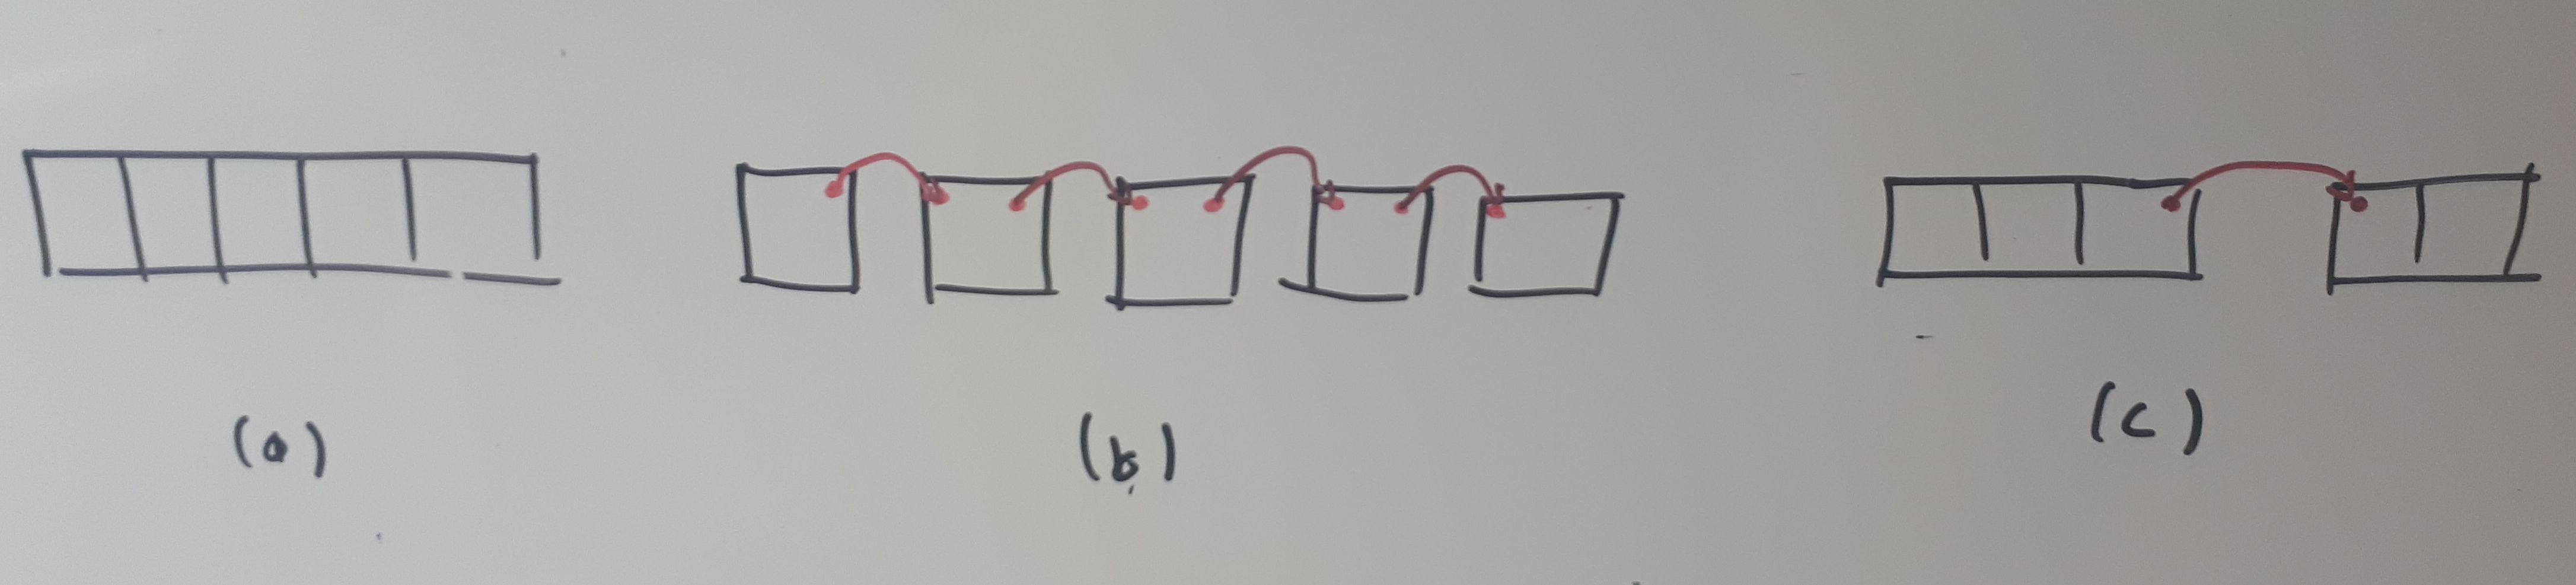 (a)
(b)
(c)